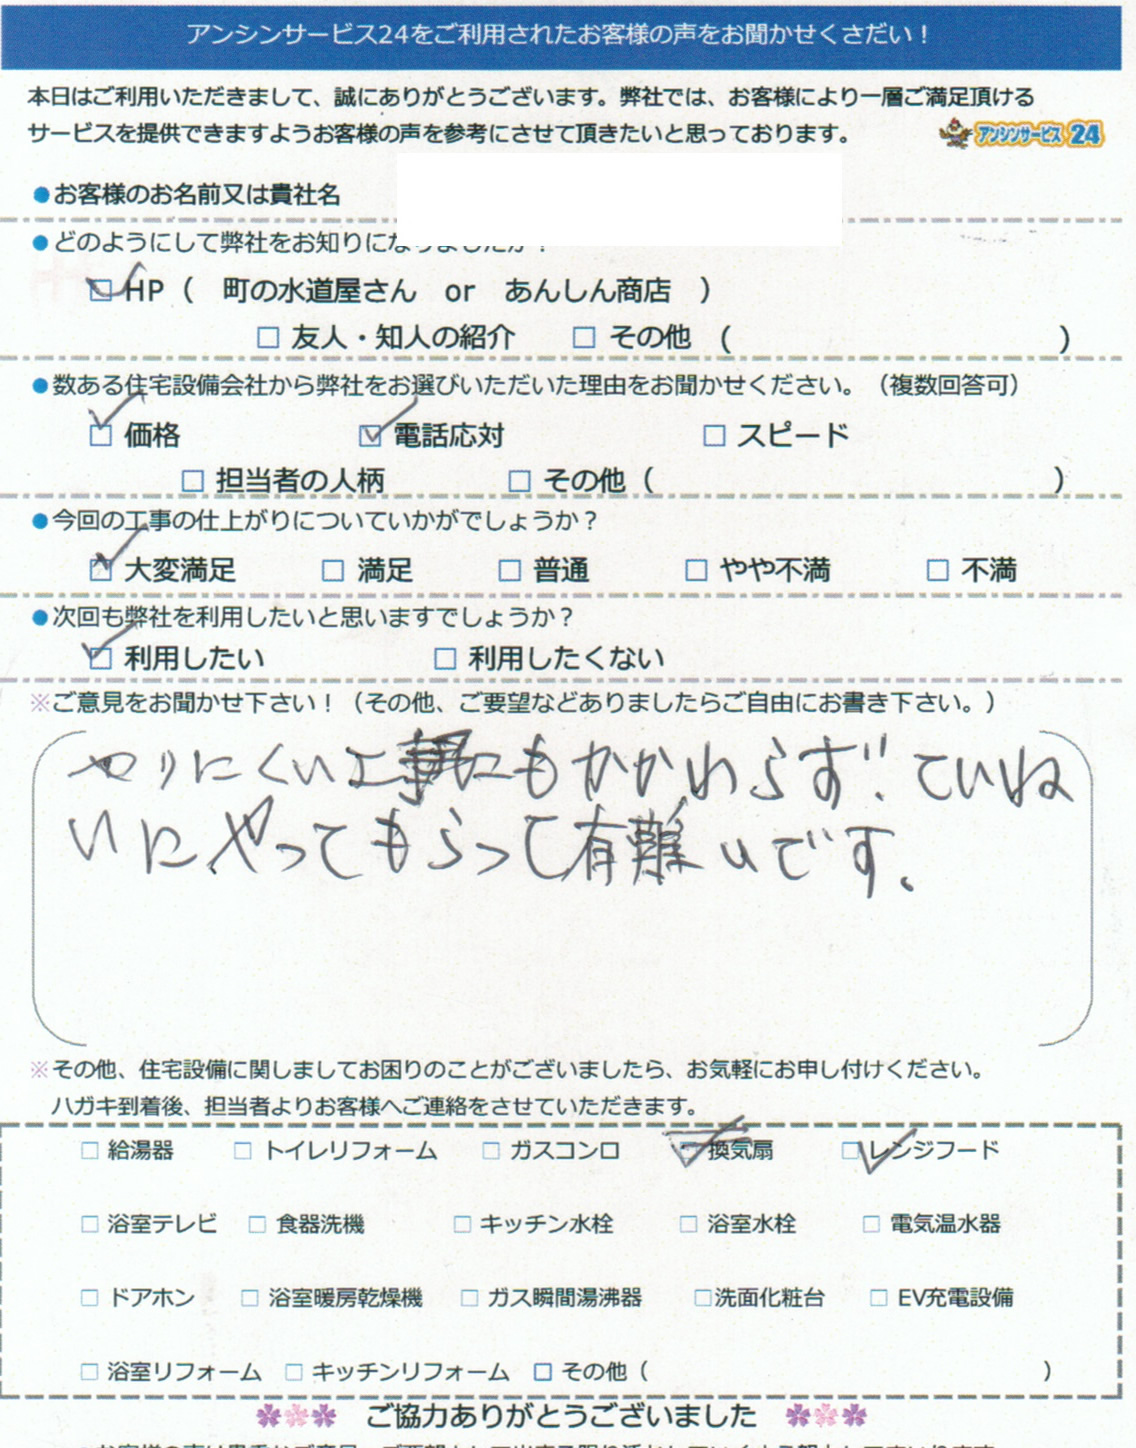 アンシンサービス24をご利用されたお客様の声をお聞かせくさだい！
本日はご利用いただきまして、誠にありがとうございます。弊社では、お客様により一層ご満足頂ける
サービスを提供できますようお客様の声を参考にさせて頂きたいと思っております。
アンシンサービス24
●お客様のお名前又は貴社名
●どのようにして弊社をお知りになりましたか？
☑ HP（ 町の水道屋さん or あんしん商店 ）
□ 友人・知人の紹介 □ その他 （ ）
●数ある住宅設備会社から弊社をお選びいただいた理由をお聞かせください。（複数回答可）
☑ 価格 ☑ 電話応対 □ スピード
□ 担当者の人柄 □ その他（ ）
●今回の工事の仕上がりについていかがでしょうか？
☑ 大変満足 □ 満足 □ 普通 □ やや不満 □ 不満
●次回も弊社を利用したいと思いますでしょうか？
☑ 利用したい □ 利用したくない
※ご意見をお聞かせ下さい！（その他、ご要望などありましたらご自由にお書き下さい。）
やりにくい工事にもかかわらず！ていね
いにやってもらって有難いです。
※その他、住宅設備に関しましてお困りのことがございましたら、お気軽にお申し付けください。
ハガキ到着後、担当者よりお客様へご連絡をさせていただきます。
□ 給湯器 □ トイレリフォーム □ ガスコンロ ☑ 換気扇 ☑ レンジフード
□ 浴室テレビ □ 食器洗機 □ キッチン水栓 □ 浴室水栓 □ 電気温水器
□ ドアホン □ 浴室暖房乾燥機 □ ガス瞬間湯沸器 □洗面化粧台 □ EV充電設備
□ 浴室リフォーム □ キッチンリフォーム □ その他（ ）
ご協力ありがとうございました